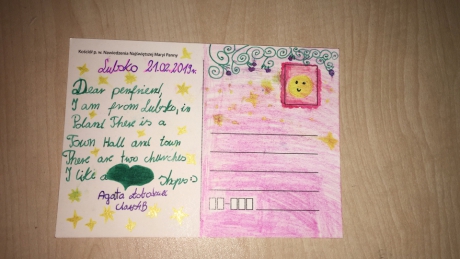 Kościół p. w. Nawiedzenia Najświętszej Maryi Panny
Lubsko 21.02.2019r.
Dear penfriend,
I am from Lubsko, in
Poland There is a
Town Hall and town
There are two churches
I like
Agata
Class 4B